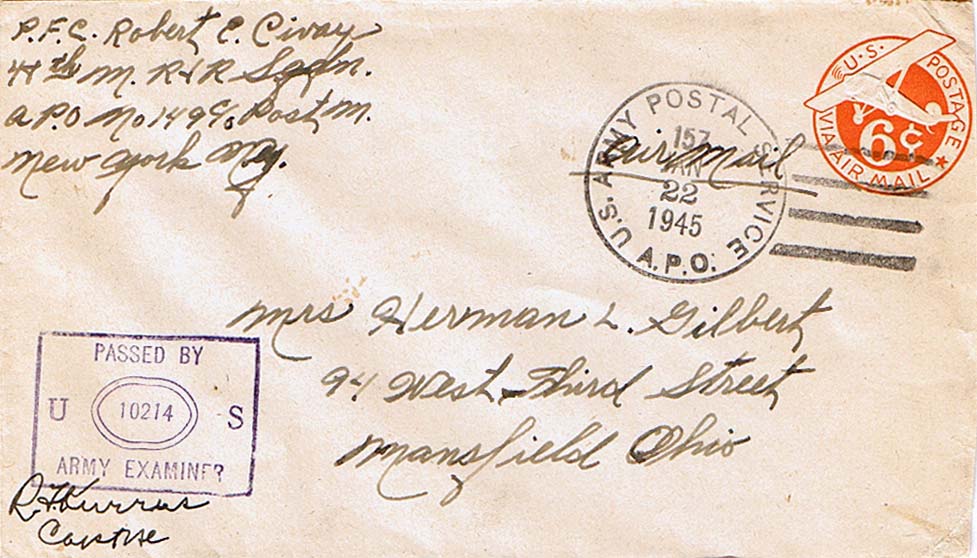 P.F.C. Robert C. Civay
4th M. R+R Sqdn.
A.P.O No 149 c/o Post M.
New York N.Y.
U.S. POSTAGE
6¢
VIA AIR MAIL
Air Mail
U.S. ARMY POSTAL SERVICE
157
JAN
22
1945
A.P.O.
Mrs Herman L. Gilbert
94 West Third Street
Mansfield Ohio
PASSED BY
U 10214 S
ARMY EXAMINER